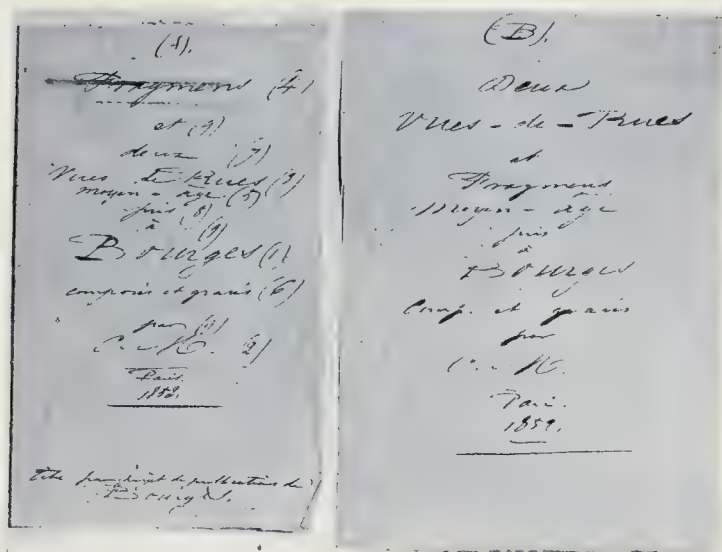 (A).
Fragmens (4)
et (9)
deux (7)
Vues de Rues (3)
moyen-âge (5)
pris (8)
à (9)
Bourges (1)
composés et gravés (6)
par (11)
C. M. 2)
Paris.
1852.
titre pour projet de publication de
Bourges.
(B).
Deux
Vues-de-Rues
et
Fragmens
moyen-âge
pris
à
Bourges
Comp. et gravés
par
C. M.
Paris.
1852.